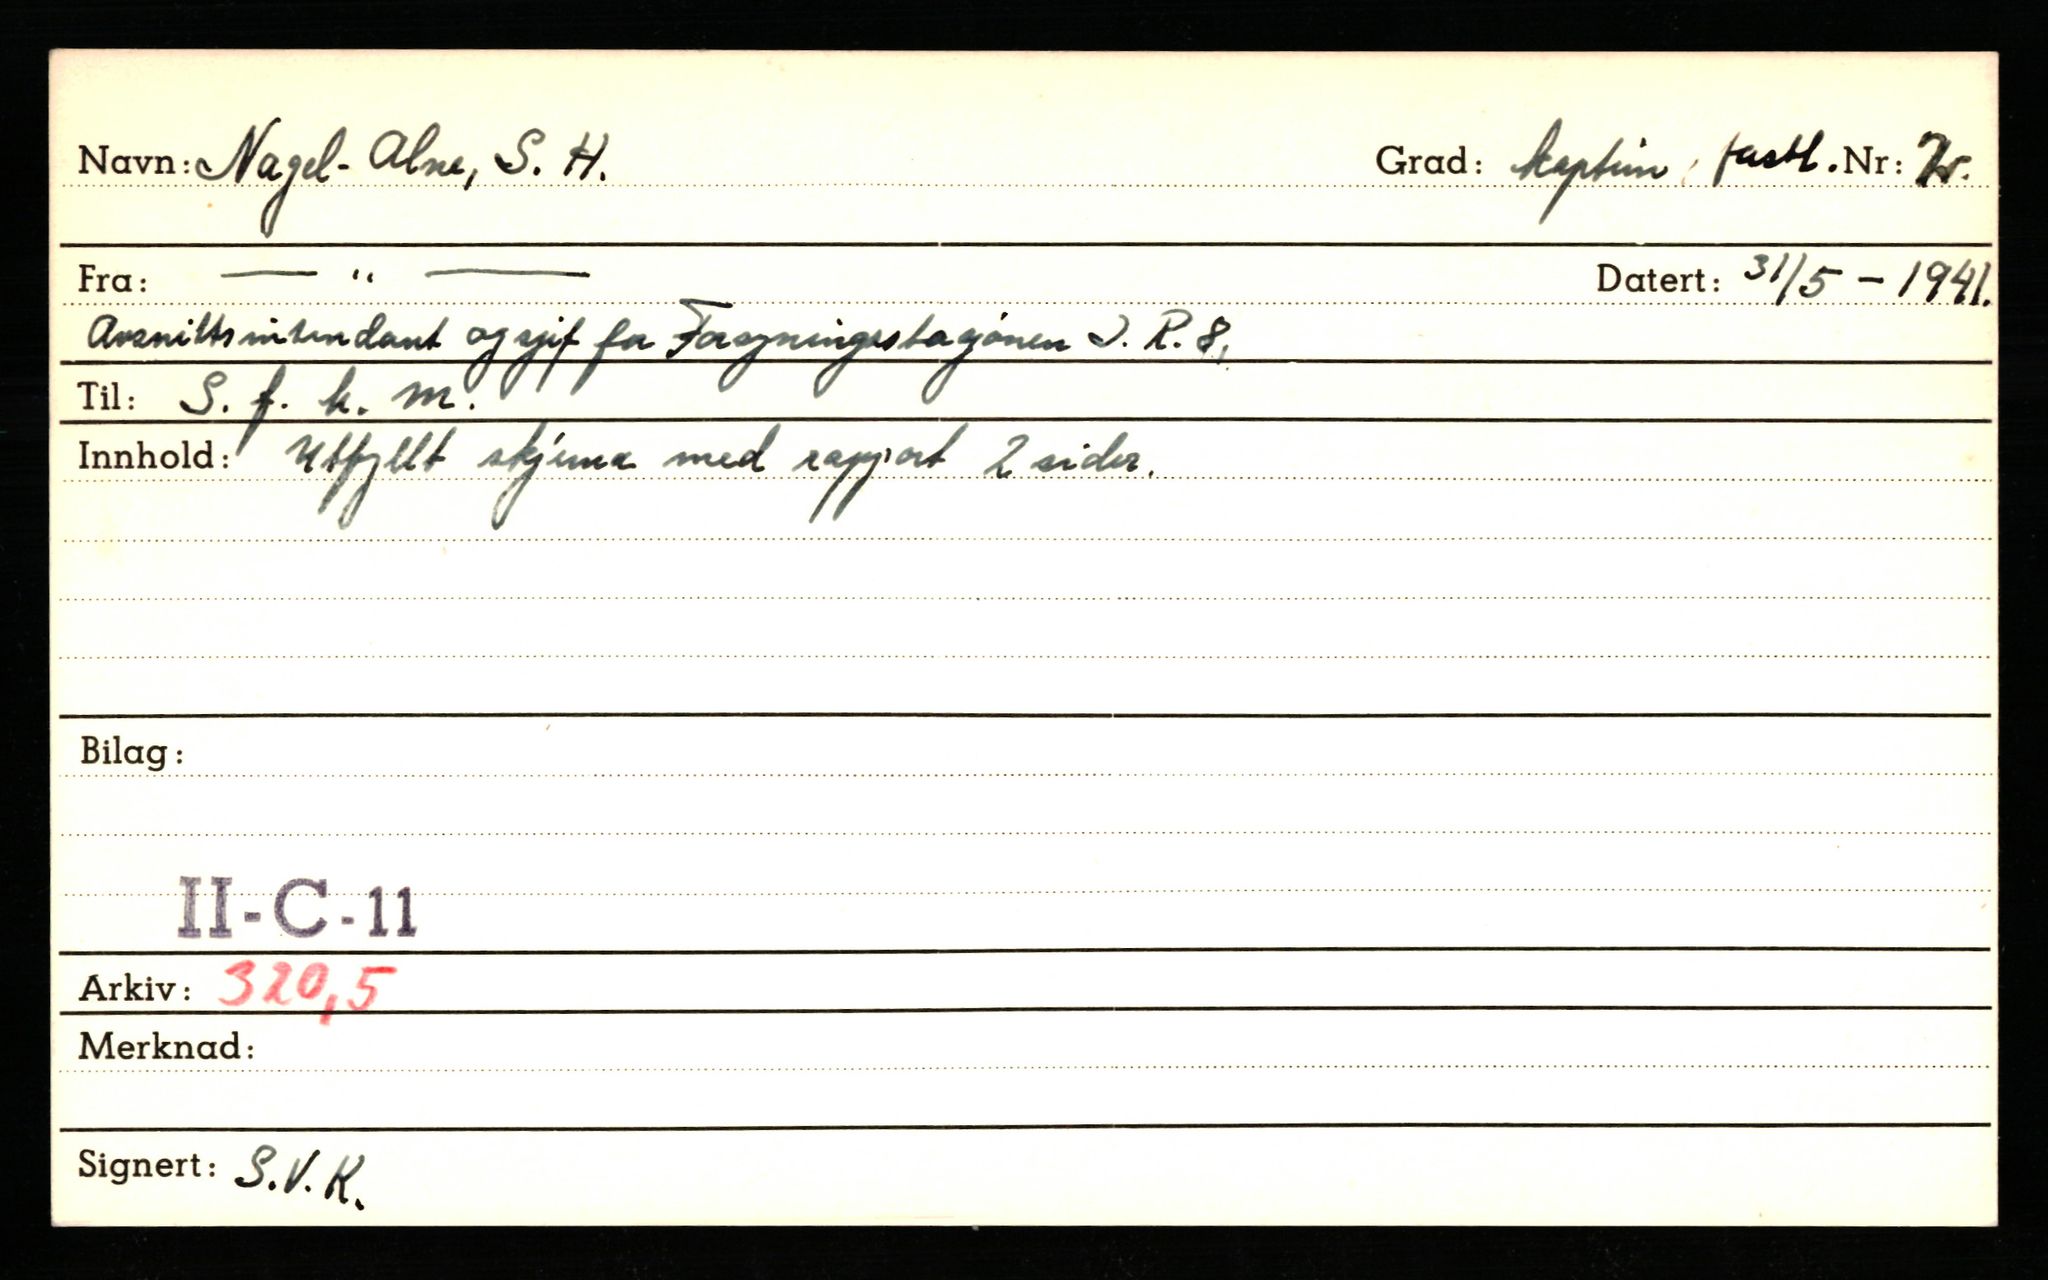 Navn: Nagel-Alne, S. H. Grad: kaptein, fastl. Nr:
Fra: — " — Datert: 31/5 - 1941.
Avsnittsintendant og sjef for Forsyningsstasjonen I. R. 8,
Til: S. f. k. m.
Innhold: Utfyllt skjema med rapport 2 sider.
Bilag:
II-C-11
Arkiv: 320,5
Merknad:
Signert: S.V.K.